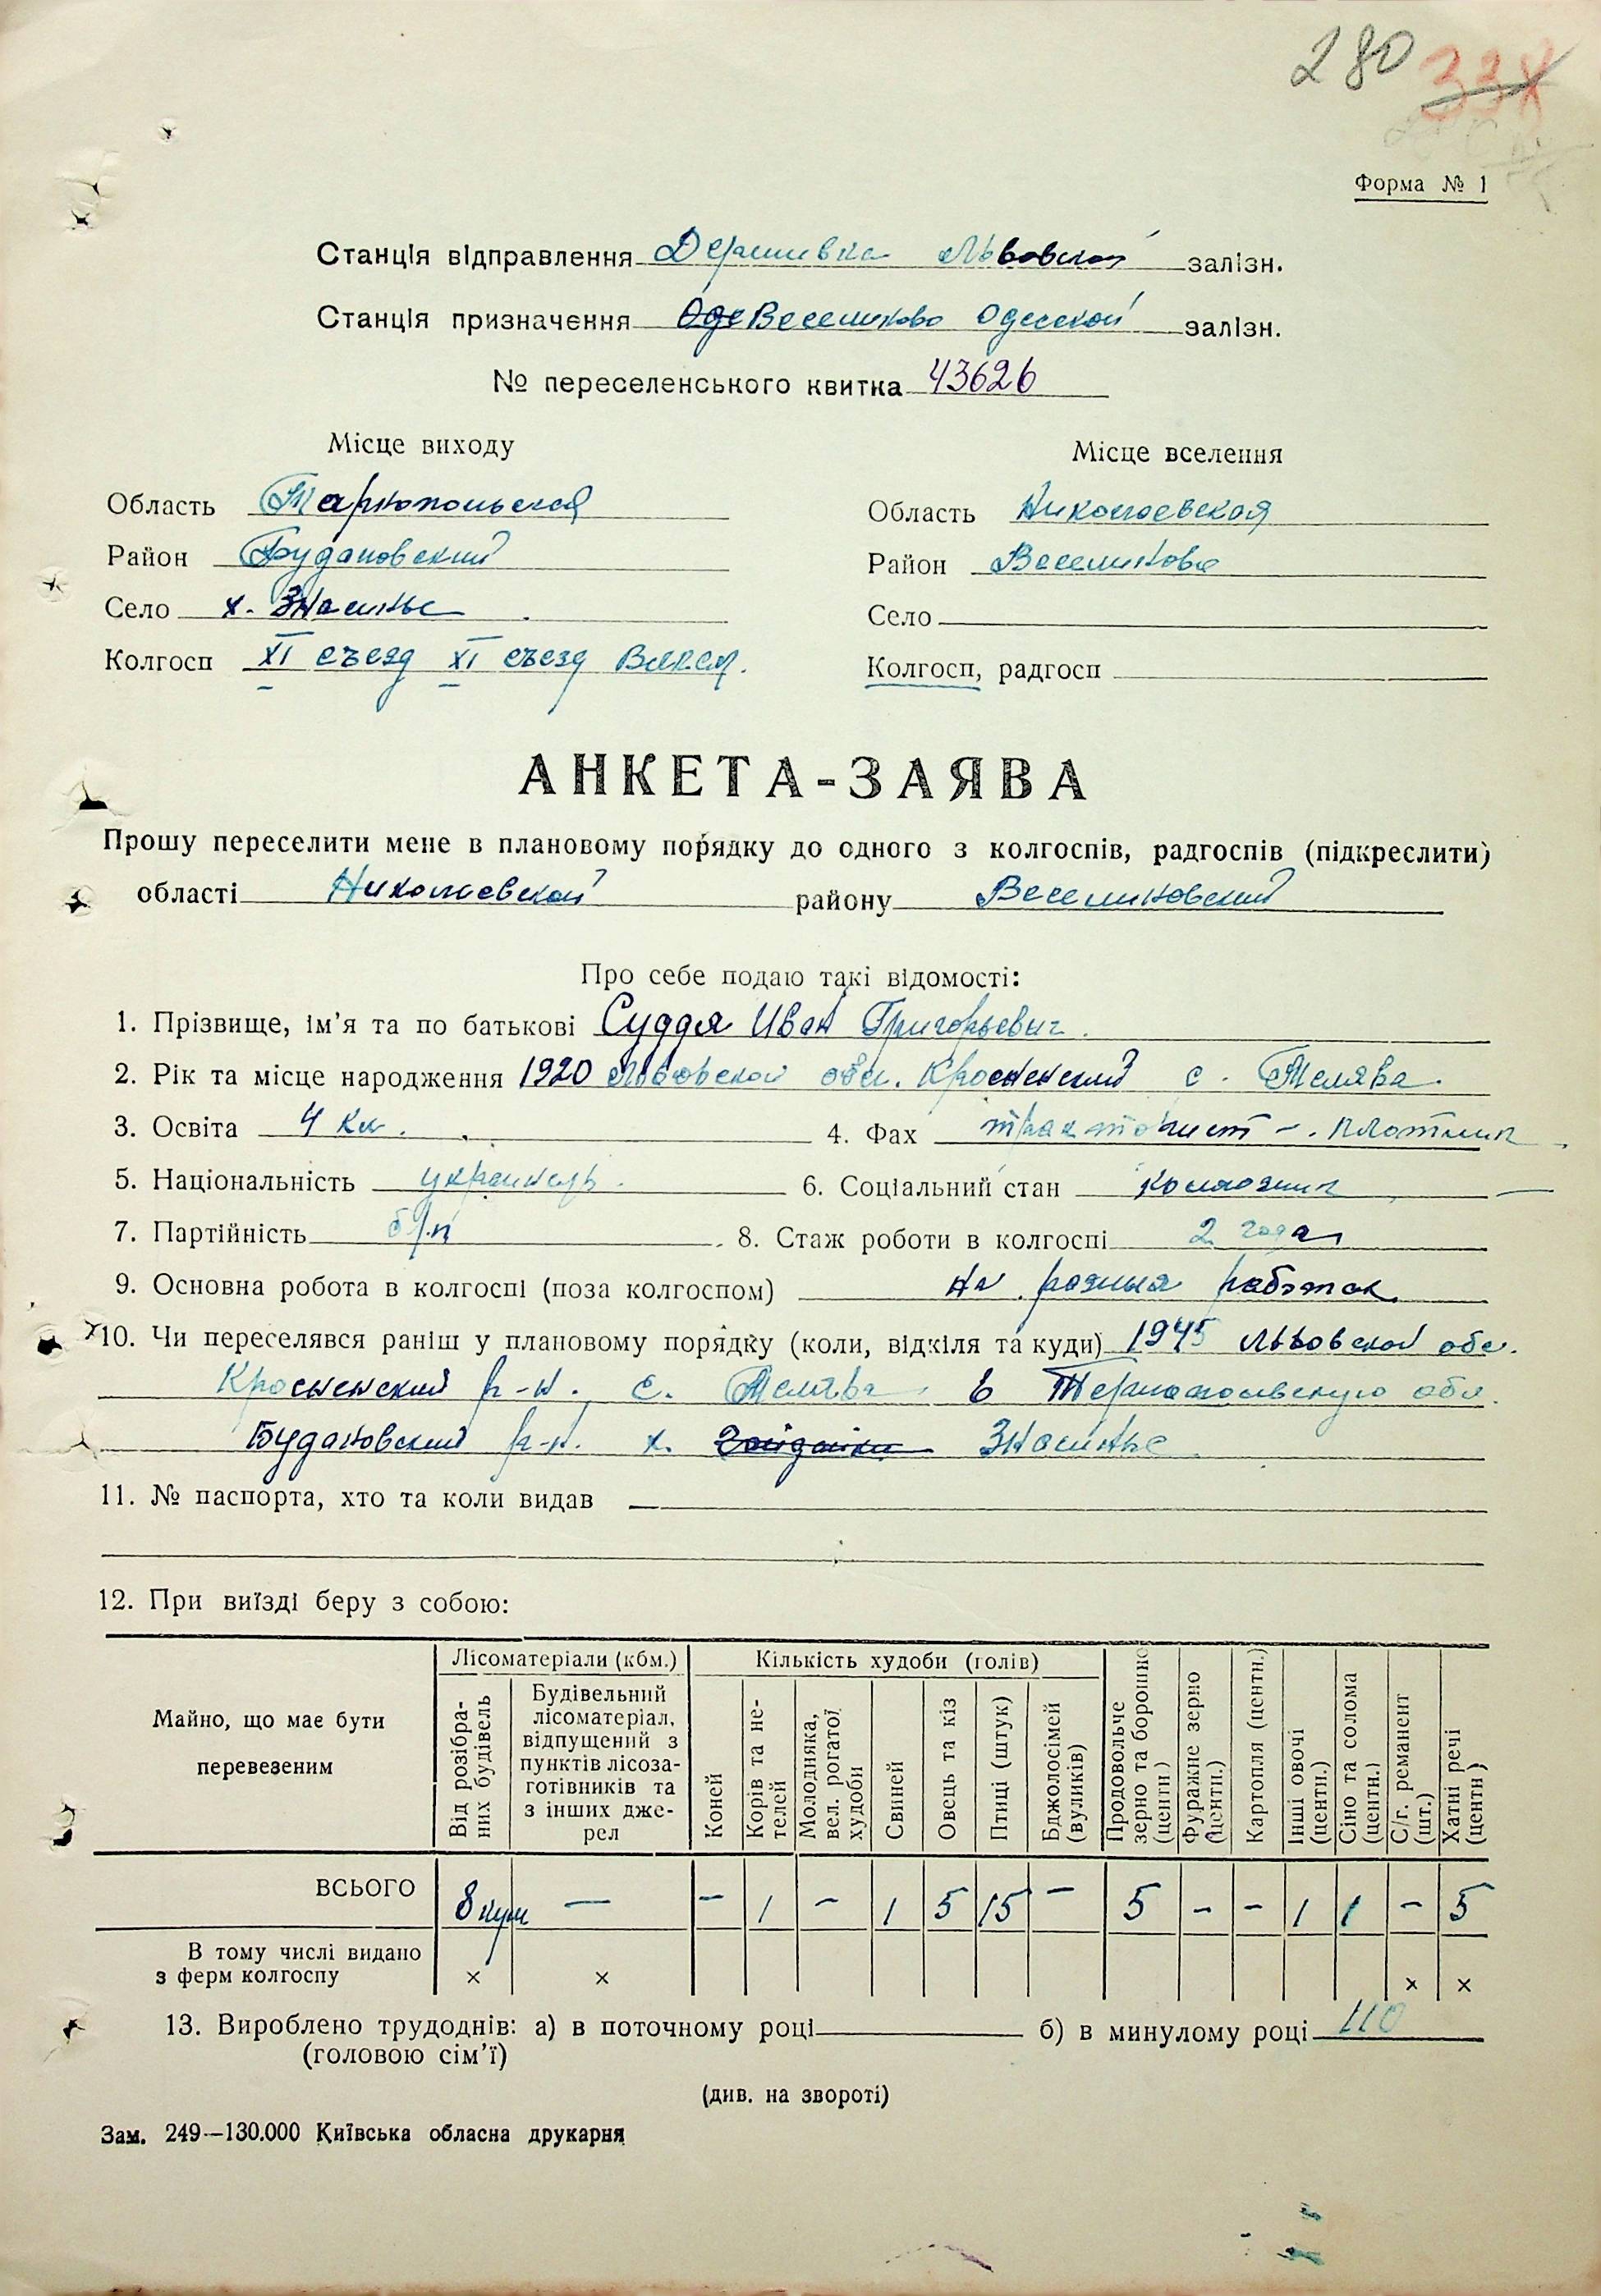 280 338
Форма № 1
Станція відправлення Деришвка Львовской залізн.
Станція призначення Веселиново Одесской залізн.
№ переселенського квитка 43626
Місце виходу
Місце вселення
Область Тарнопольская
Область Николаевская
Район Будановский
Район Веселиново
Село х. Знасинье
Село
Колгосп XI съезд XI съезд Влксм.
Колгосп, радгосп
АНКЕТА-ЗАЯВА
Прошу переселити мене в плановому порядку до одного з колгоспів, радгоспів (підкреслити)
області Николаевской району Веселиновский
Про себе подаю такі відомості:
1. Прізвище, ім'я та по батькові Суддя Иван Григорьевич.
2. Рік та місце народження 1920 Львовской обл. Кросненский с.
3. Освіта 4 кл. 4. Фах тракторист - плотник
5. Національність украинець. 6. Соціальний стан колхозник
7. Партійність б/п 8. Стаж роботи в колгоспі 2 года
9. Основна робота в колгоспі (поза колгоспом) на разных работах
10. Чи переселявся раніш у плановому порядку (коли, відкіля та куди) 1945 Львовской обл.
Кросненский р-н. с. в Тернопольскую обл.
Будановский р-н. х. Знасинье
11. № паспорта, хто та коли видав
12. При виїзді беру з собою:
Майно, що має бути перевезеним
Лісоматеріали (кбм.)
Кількість худоби (голів)
Від розібраних будівель
Будівельний лісоматеріал, відпущений з пунктів лісозаготівників та з інших джерел
Коней
Корів та нетелей
Молодняка, вел. рогатої худоби
Свиней
Овець та кіз
Птиці (штук)
Бджолосімей (вуликів)
Продовольче зерно та борошно (центн)
Фуражне зерно (центн.)
Картопля (центн.)
Інші овочі (центн.)
Сіно та солома (центн.)
С/г. реманент (шт.)
Хатні речі (центн)
ВСЬОГО 8 куш — – 1 – 1 5 15 – 5 – – 1 1 – 5
В тому числі видано
з ферм колгоспу × × × ×
13. Вироблено трудоднів: а) в поточному році б) в минулому році 110
(головою сім'ї)
(див. на звороті)
Зам. 249—130.000 Київська обласна друкарня